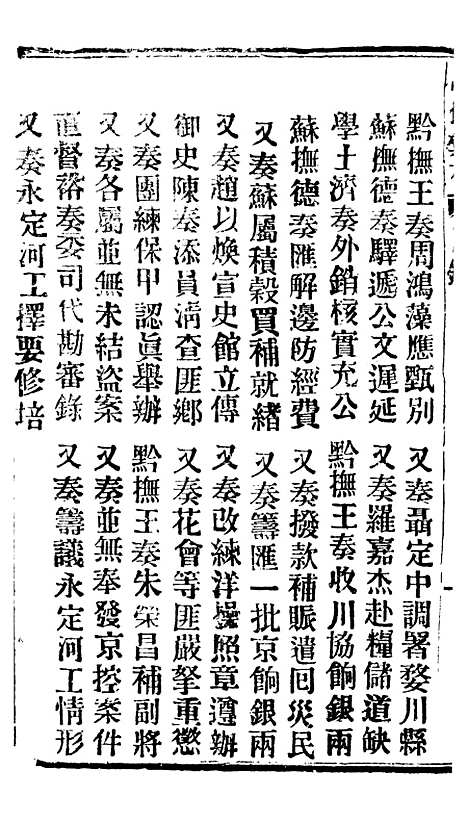 黔撫王奏周鴻藻應甄別
又奏聶定中調署婺川縣
蘇撫德奏驛遞公文遲延
又奏羅嘉杰赴糧儲道缺
學士濟奏外銷核實充公
黔撫王奏收川協餉銀兩
蘇撫德奏匯解邊防經費
又奏撥款補賑遣囘災民
又奏蘇屬積穀買補就緒
又奏籌匯一批京餉銀兩
又奏趙以煥宣史館立傳
又奏改練洋操照章遵辦
御史陳奏添員淸查匪鄕
又奏花會等匪嚴拏重懲
又奏團練保甲認眞舉辦
黔撫王奏朱榮昌補副將
又奏各屬並無未結盜案
又奏並無奉發京控案件
直督裕奏委司代勘審錄
又奏籌議永定河工情形
又奏永定河工擇要修培